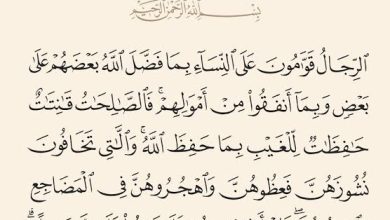 بِسْمِ ٱللَّهِ ٱلرَّحْمَٰنِ ٱلرَّحِيمِ
ٱلرِّجَالُ قَوَّٰمُونَ عَلَى ٱلنِّسَآءِ بِمَا فَضَّلَ ٱللَّهُ بَعْضَهُمْ عَلَىٰ
بَعْضٍ وَبِمَآ أَنفَقُوا۟ مِنْ أَمْوَٰلِهِمْ ۚ فَٱلصَّٰلِحَٰتُ قَٰنِتَٰتٌ
حَٰفِظَٰتٌ لِّلْغَيْبِ بِمَا حَفِظَ ٱللَّهُ ۚ وَٱلَّٰتِى تَخَافُونَ
نُشُوزَهُنَّ فَعِظُوهُنَّ وَٱهْجُرُوهُنَّ فِى ٱلْمَضَاجِعِ